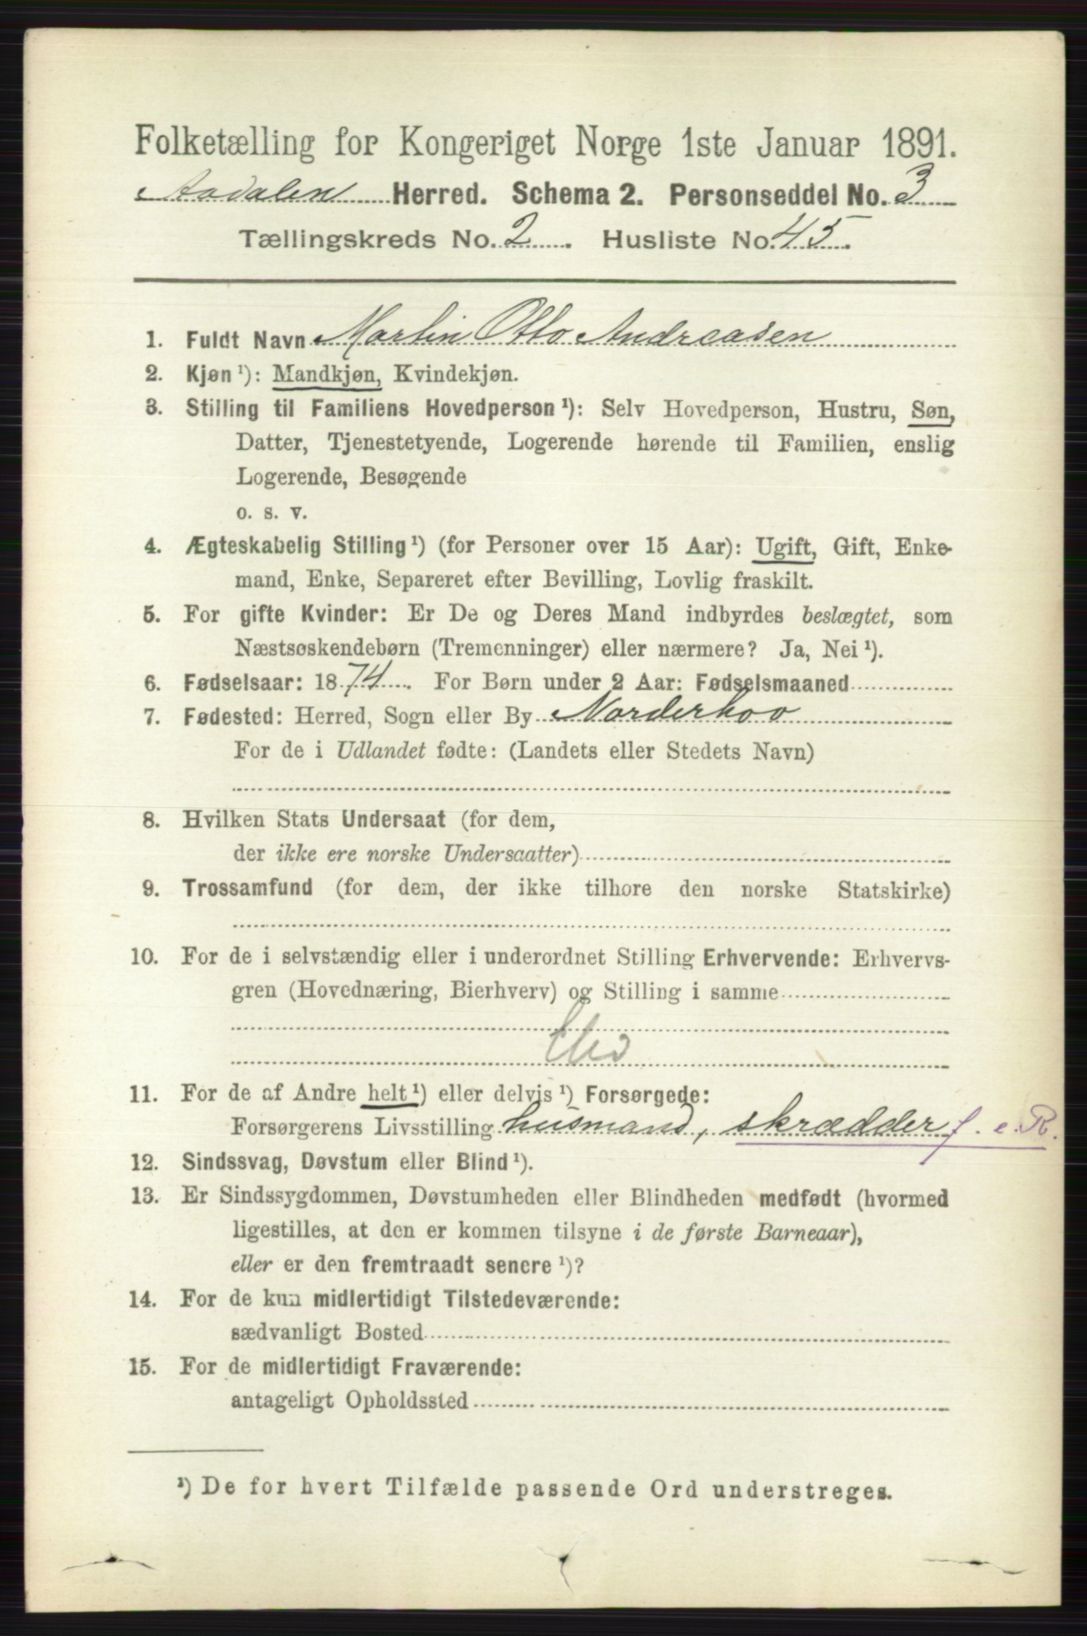 Folketælling for Kongeriget Norge 1ste Januar 1891.
Aadalen Herred. Schema 2. Personseddel No. 3
Tællingskreds No. 2. Husliste No. 45.
1. Fuldt Navn Martin Otto Andreasen
2. Kjøn ¹): Mandkjøn, Kvindekjøn.
3. Stilling til Familiens Hovedperson ¹): Selv Hovedperson, Hustru, Søn,
Datter, Tjenestetyende, Logerende hørende til Familien, enslig
Logerende, Besøgende
o. s. v.
4. Ægteskabelig Stilling ¹) (for Personer over 15 Aar): Ugift, Gift, Enke-
mand, Enke, Separeret efter Bevilling, Lovlig fraskilt.
5. For gifte Kvinder: Er De og Deres Mand indbyrdes beslægtet, som
Næstsøskendebørn (Tremenninger) eller nærmere? Ja, Nei ¹).
6. Fødselsaar: 1874. For Børn under 2 Aar: Fødselsmaaned
7. Fødested: Herred, Sogn eller By Norderhoo
For de i Udlandet fødte: (Landets eller Stedets Navn)
8. Hvilken Stats Undersaat (for dem,
der ikke ere norske Undersaatter)
9. Trossamfund (for dem, der ikke tilhøre den norske Statskirke)
10. For de i selvstændig eller i underordnet Stilling Erhvervende: Erhvervs-
gren (Hovednæring, Bierhverv) og Stilling i samme
11. For de af Andre helt ¹) eller delvis ¹) Forsørgede:
Forsørgerens Livsstilling husmand, skrædder f. e. R.
12. Sindssvag, Døvstum eller Blind ¹).
13. Er Sindssygdommen, Døvstumheden eller Blindheden medfødt (hvormed
ligestilles, at den er kommen tilsyne i de første Barneaar),
eller er den fremtraadt senere ¹)?
14. For de kun midlertidigt Tilstedeværende:
sædvanligt Bosted
15. For de midlertidigt Fraværende:
antageligt Opholdssted
¹) De for hvert Tilfælde passende Ord understreges.